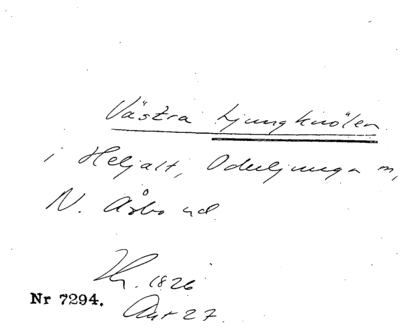 Västra Ljungknölen
i Heljalt, Oderljunga m,
N. Åsbo nd.
1826
Nr 7294.
27.